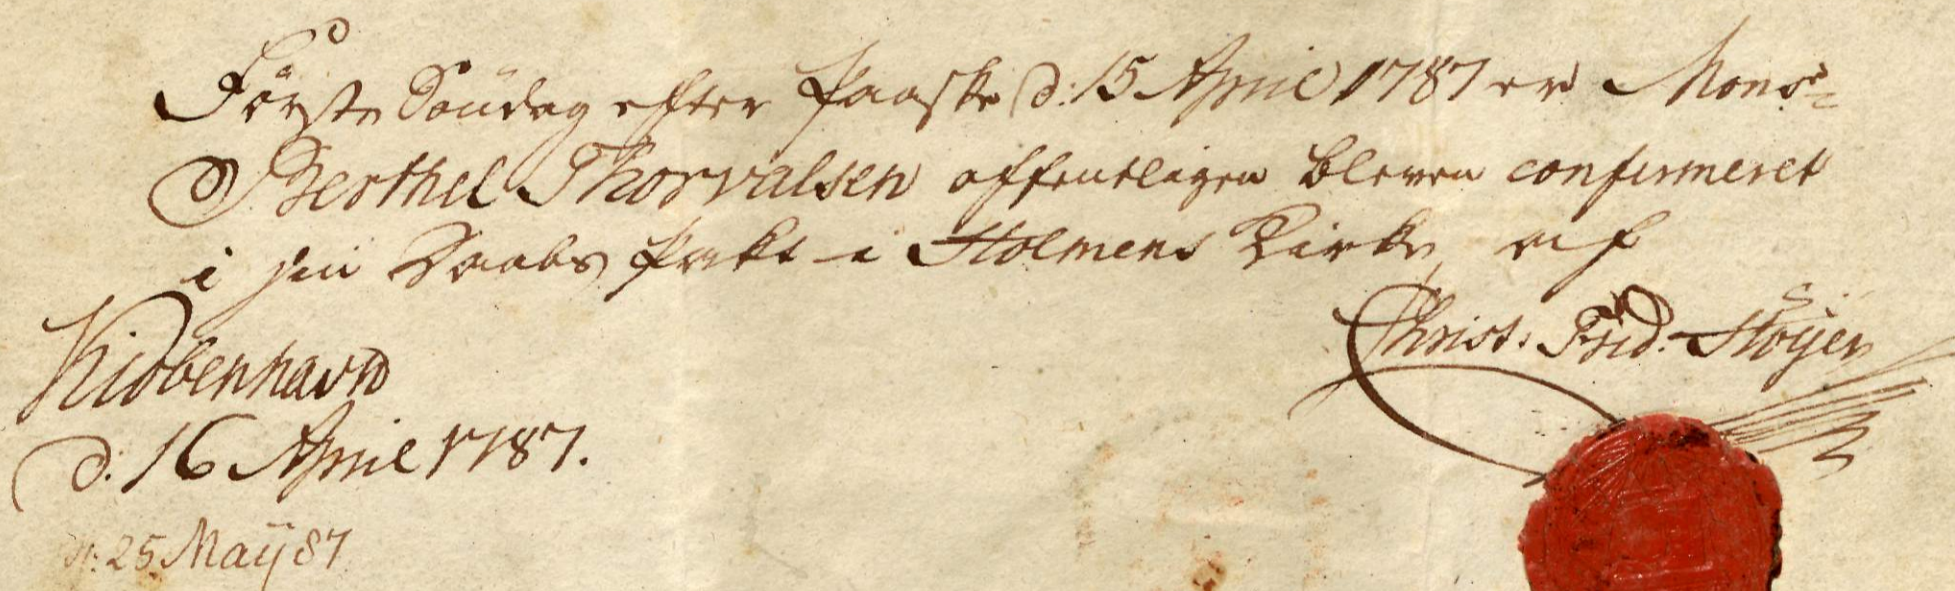 Förste Söndag efter Paaske d: 15 April 1787 er Monsr
Berthel Thorvalsen offentligen bleven confirmeret
i sin Daabs Pakt i Holmens Kirke, af
Christ: Frid: Höyer
Kiöbenhavn
d. 16 April 1787.
d: 25 Maij 87